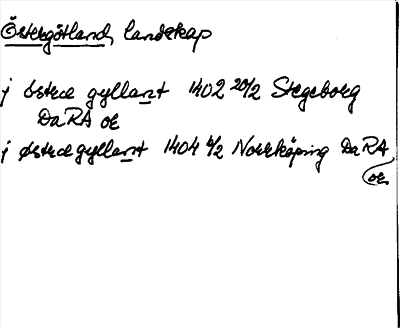 Östergötland, landskap
j östre gyllant 1402 20/2 Stegeborg
DaRA or
j østregyllant 1404 6/2 Norrköping DaRA
or